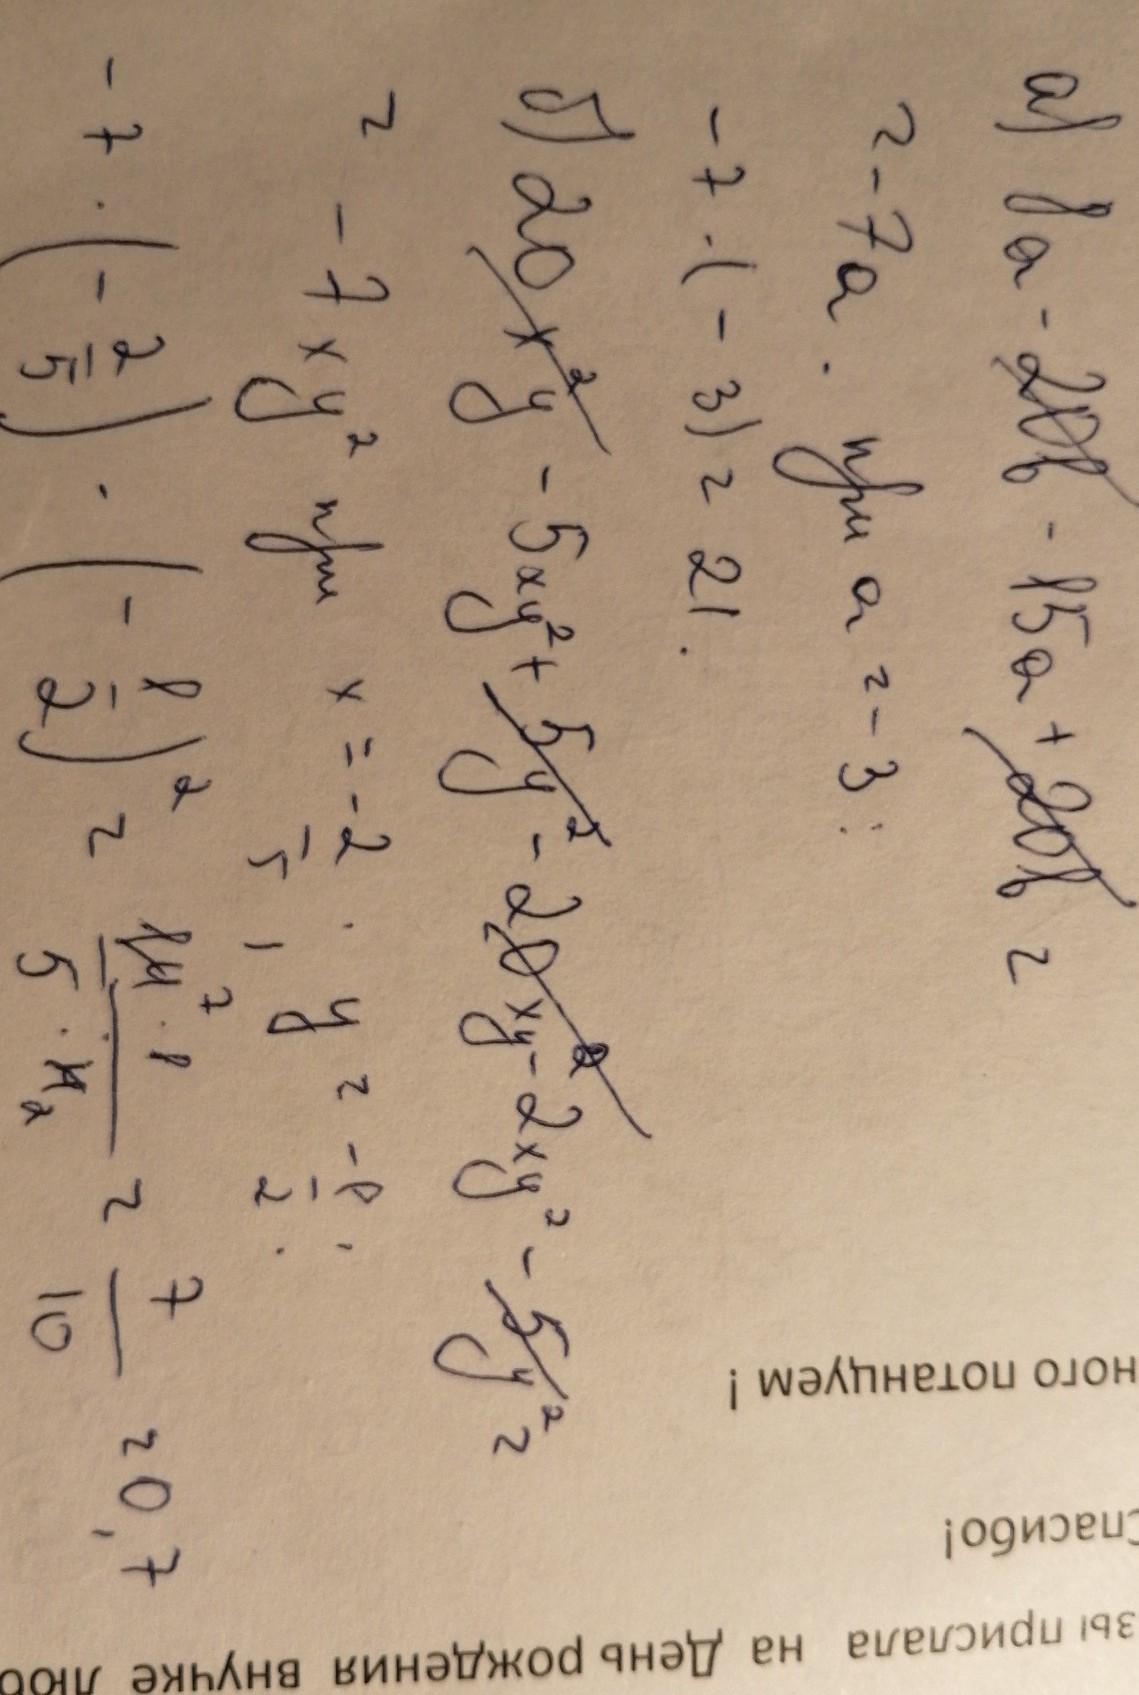 а) 8a - 20b - 15a + 20b =
= -7a. при a = -3:
-7 · (-3) = 21.
б) 20x²y - 5xy² + 5y² - 20xy² - 2xy² - 5y² =
= -7xy² при x = -2/5. y = -1/2:
-7 · (-2/5) · (-1/2)² = 14⁷ · 1 / 5 · 4₂ = 7/10 = 0,7
ного потанцуем!
Спасибо!
зы прислала на День рождения внучке люб